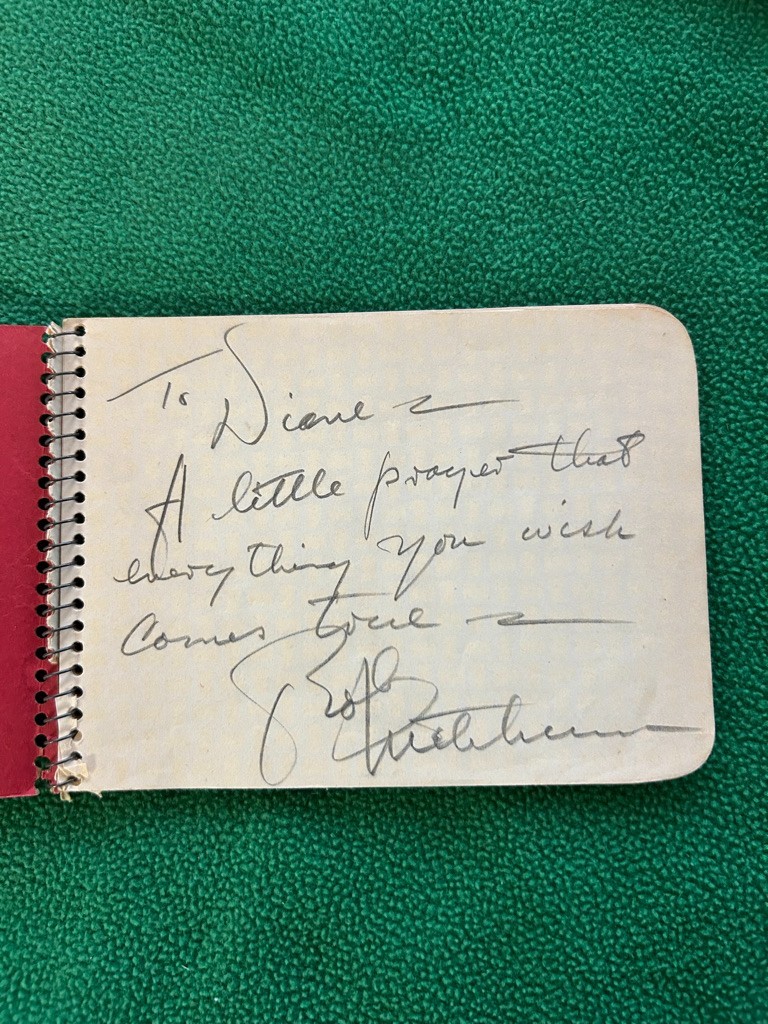 To Diane
A little prayer that
everything you wish
comes true